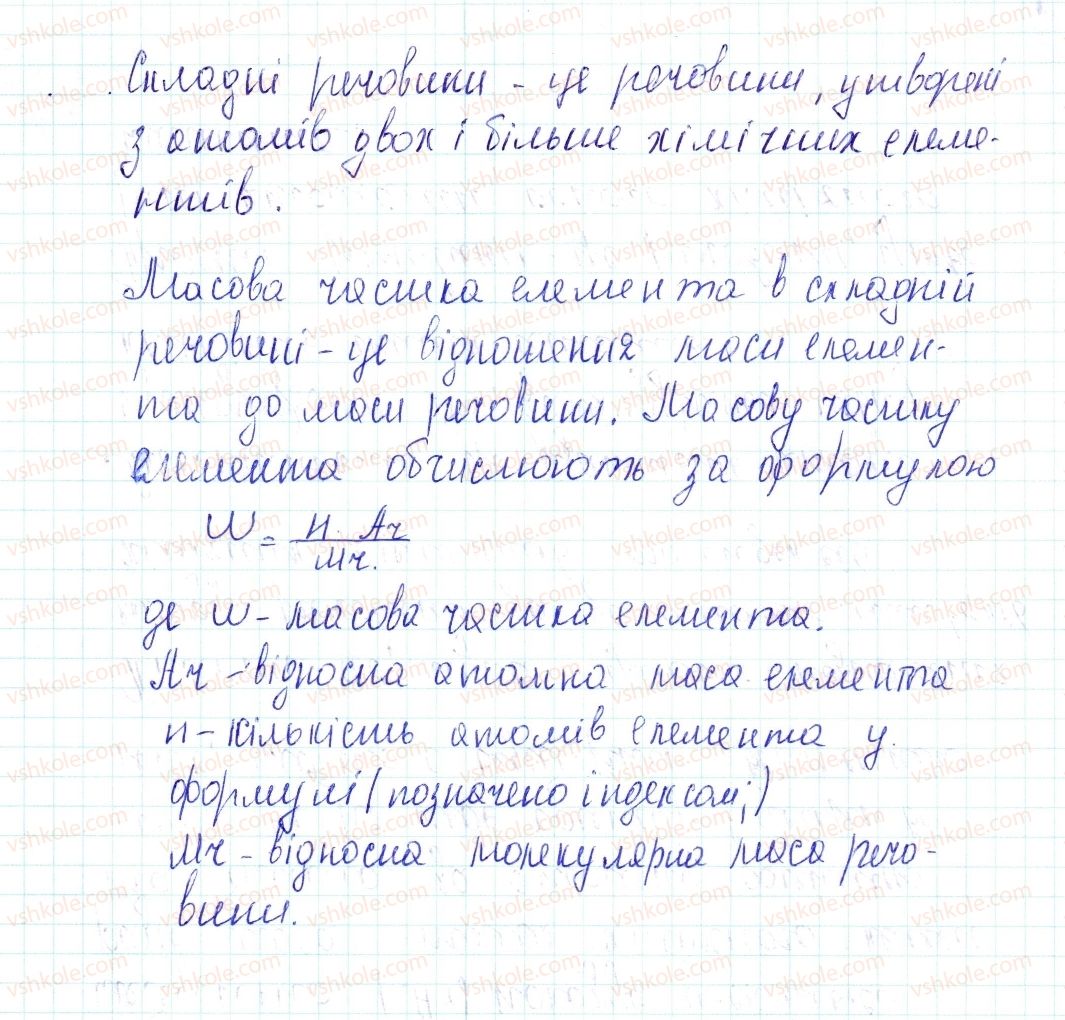 Складні речовини - це речовини, утворені
з атомів двох і більше хімічних елеме-
нтів.
Масова частка елемента в складній
речовині - це відношення маси елемен-
та до маси речовини. Масову частку
елемента обчислюють за формулою
W = n · Ar / Mr.
де W - масова частка елемента.
Ar - відносна атомна маса елемента
n - кількість атомів елемента у
формулі (позначено індексом;)
Mr - відносна молекулярна маса речо-
вини.